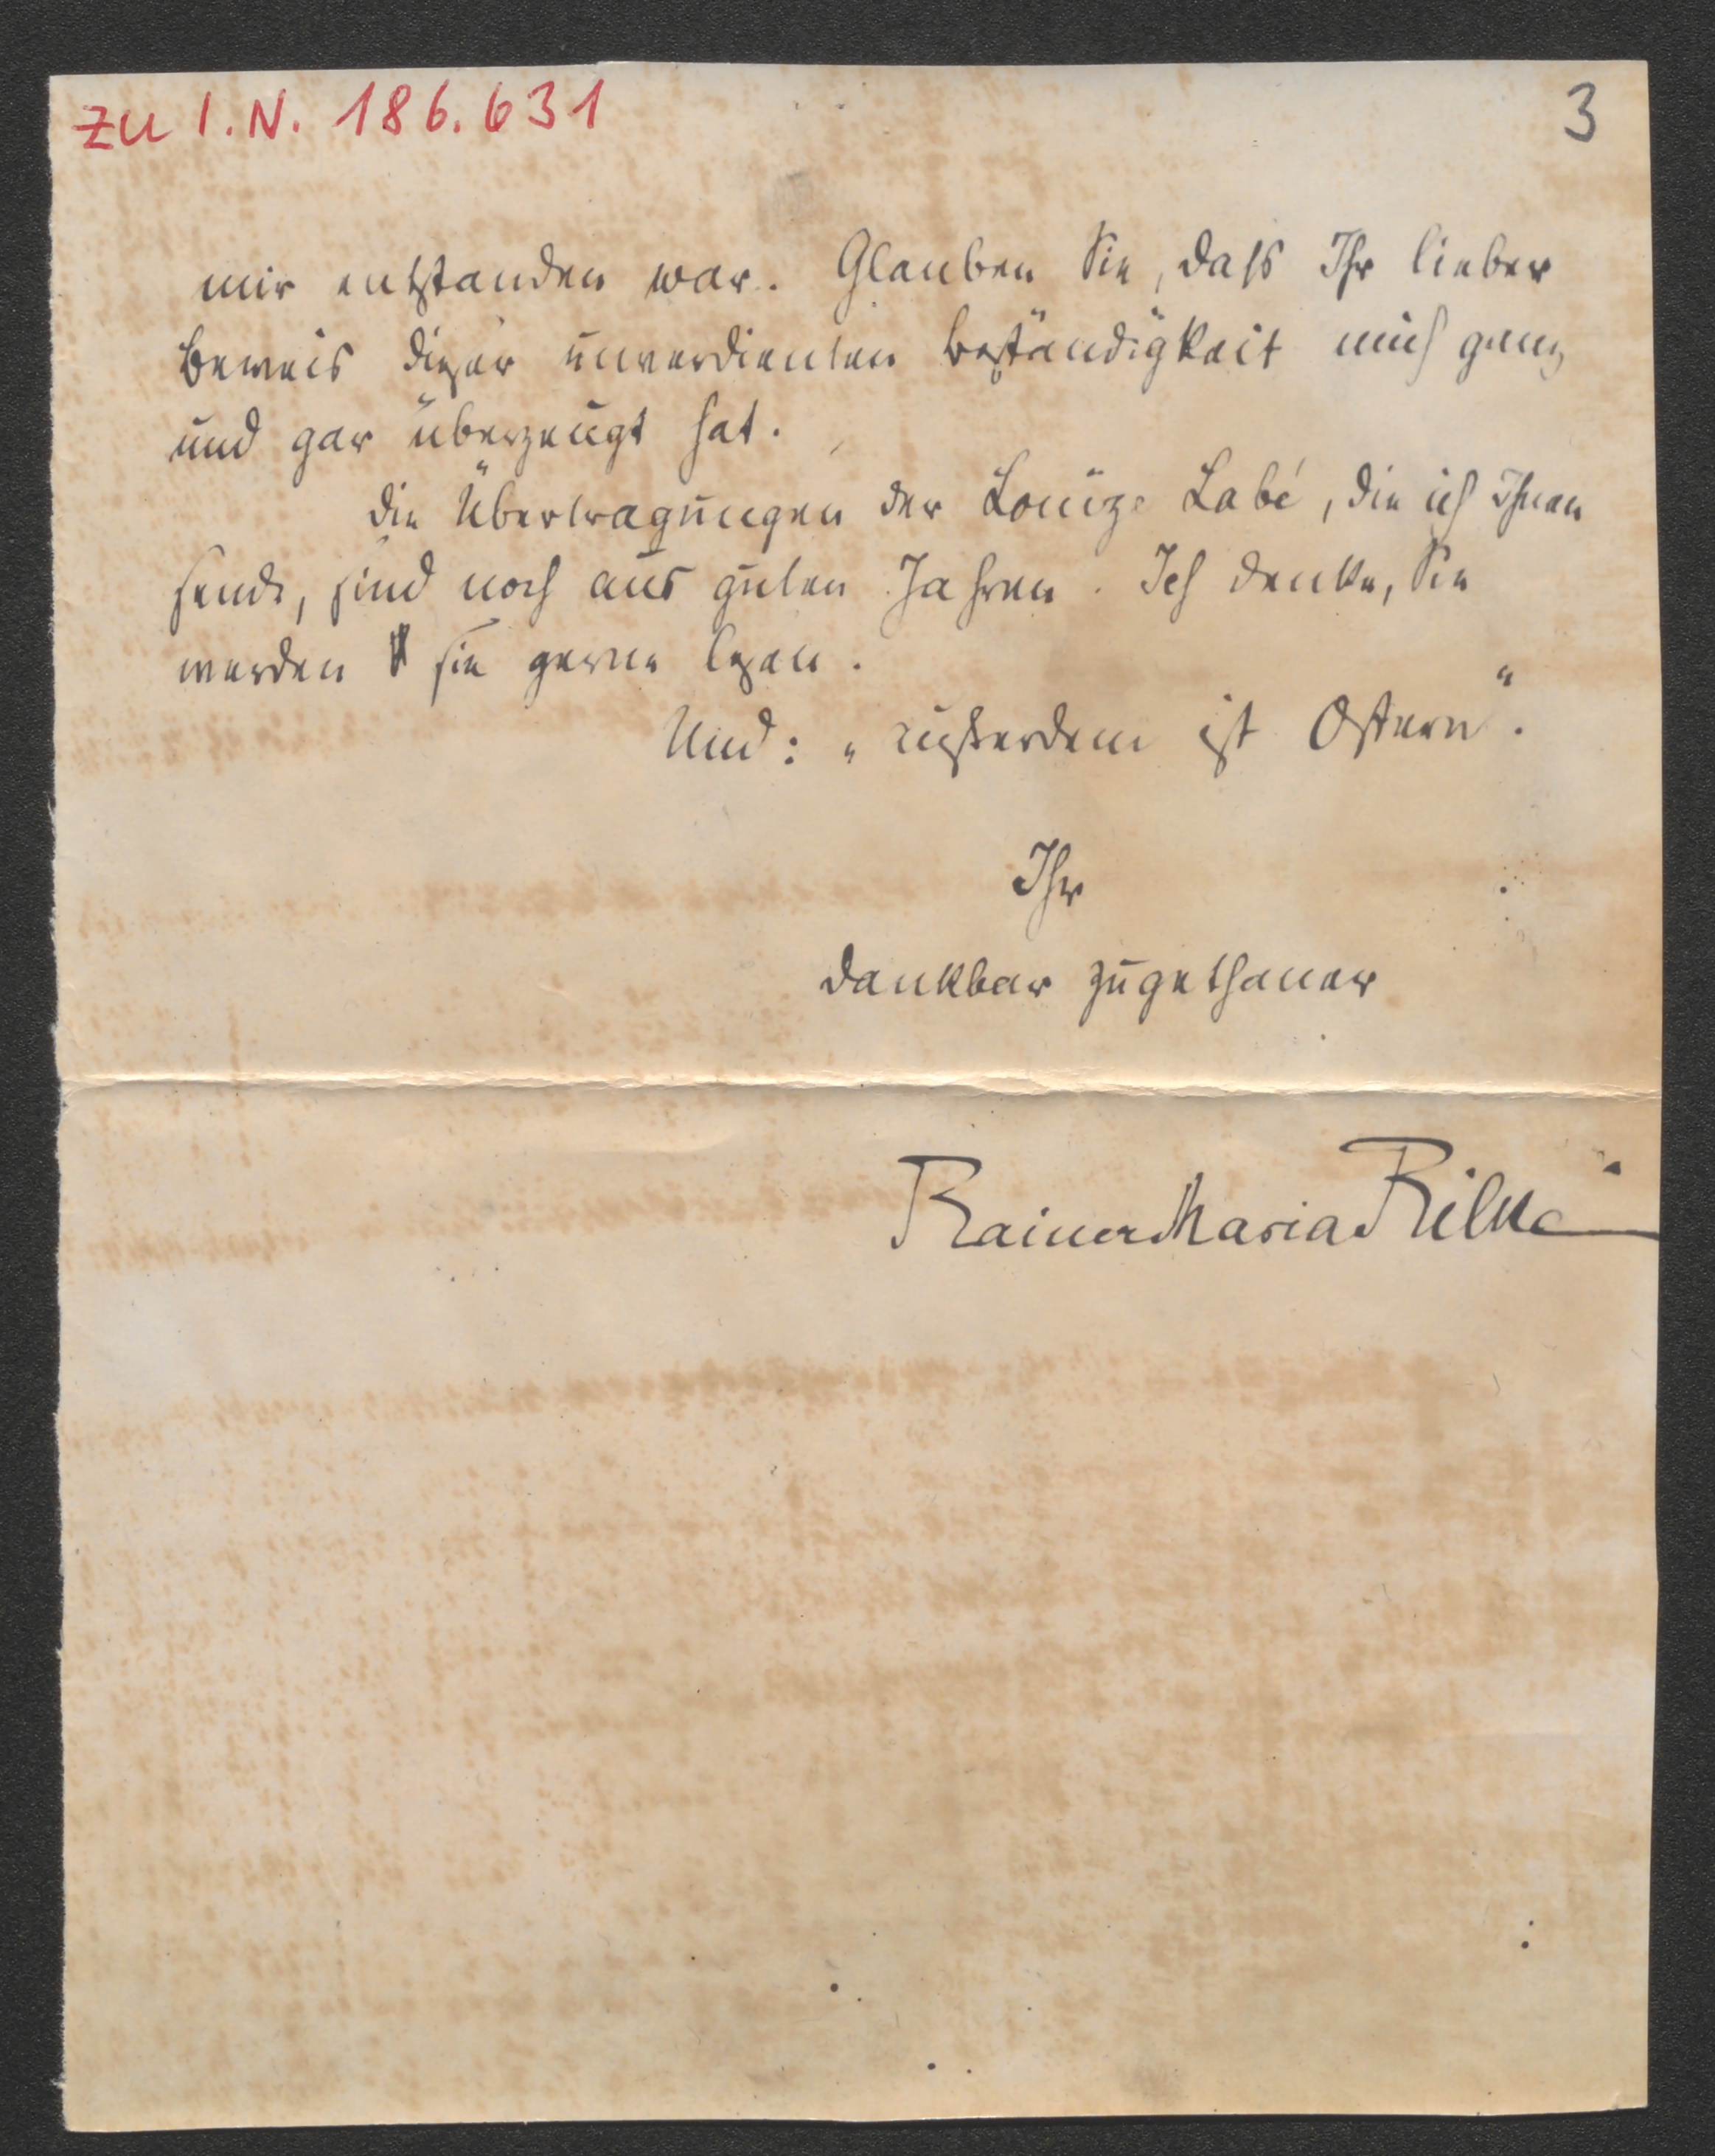 zu I.N. 186.631
3
mir entstanden war. Glauben Sie, dass Ihr lieber
Beweis dieser unverdienten Beständigkeit mich ganz
und gar überzeugt hat.
Die Übertragungen der Louïze Labé, die ich Ihnen
sende, sind noch aus guten Jahren. Ich denke, Sie
werden sie gerne lesen.
Und: „ausserdem ist Ostern“.
Ihr
dankbar zugethaner
Rainer Maria Rilke